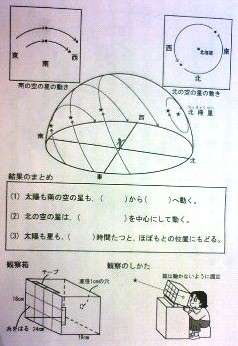 東
西
南
南の空の星の動き
西
東
北極星
北
北の空の星の動き
北極星
南
西
北
東
結果のまとめ
(1) 太陽も南の空の星も、( )から( )へ動く。
(2) 北の空の星は、( )を中心にして動く。
(3) 太陽も星も、( )時間たつと、ほぼもとの位置にもどる。
観察箱
テープ
直径1cmの穴
18cm
糸をはる
24cm
19cm
観察のしかた
箱は動かないように固定